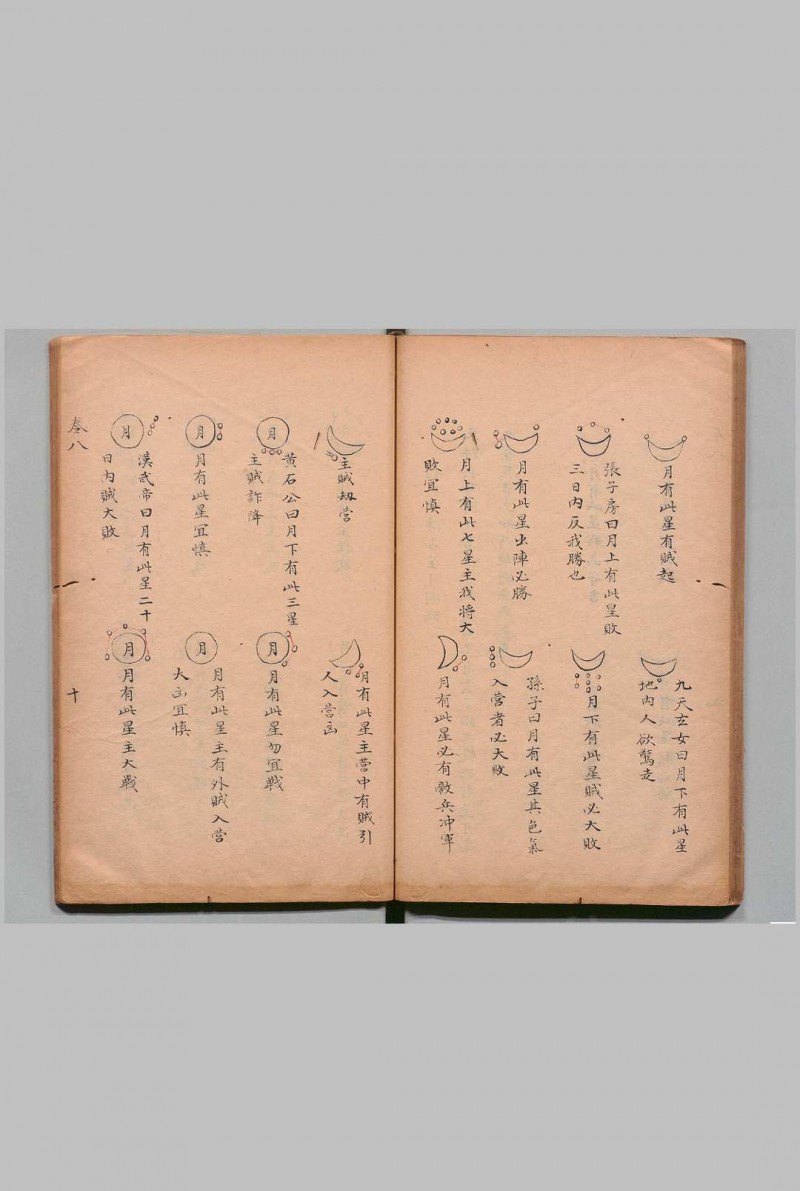 月有此星有賊起
張子房曰月上有此星敗
三日內反我勝也
月有此星出陣必勝
月上有此七星主我將大
敗宜慎
九天玄女曰月下有此星
地內人欲驚走
月下有此星賊必大敗
孫子曰月有此星其色氣
入營者必大敗
月有此星必有敵兵沖軍
主賊刼營
月
黃石公曰月下有此三星
主賊詐降
月
月有此星宜慎
月
漢武帝曰月有此星二十
日內賊大敗
月有此星主營中有賊引
人入營凶
月
月有此星勿宜戰
月
月有此星主有外賊入營
大凶宜慎
月
月有此星主大戰
卷八
十